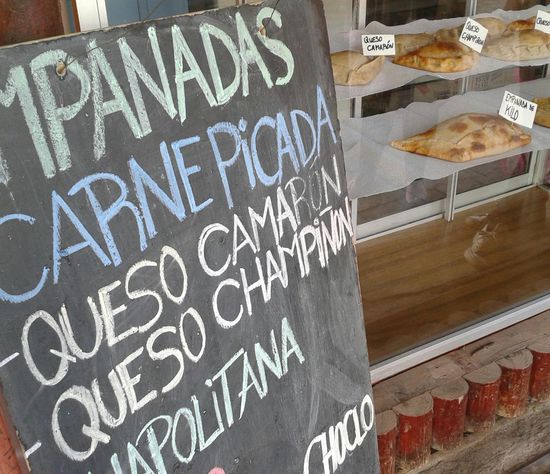 MPANADAS
CARNE PICADA
- QUESO CAMARÓN
- QUESO CHAMPIÑON
NAPOLITANA
CHOCLO
QUESO CAMARÓN
QUESO CHAMPIÑON
EMPANADA DE KILO